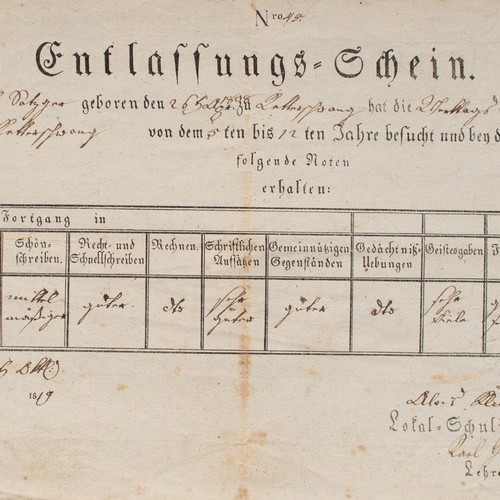 Nro. 45.
Entlassungs-Schein.
Satzger geboren den 26 zu Ketterschwang hat die Werktags
Ketterschwang von dem 6 ten bis 12 ten Jahre besucht und bey d
folgende Noten
erhalten:
Fortgang in
Schön-schreiben. Recht- und Schnellschreiben Rechnen. Schriftlichen Aufsätzen Gemeinnützigen Gegenständen Gedächtniß-Uebungen Geistesgaben F
mittel mäßiger guter dto sehr guter guter dto sehr viele
1819
Alois
Lokal-Schuli
Karl
Lehre